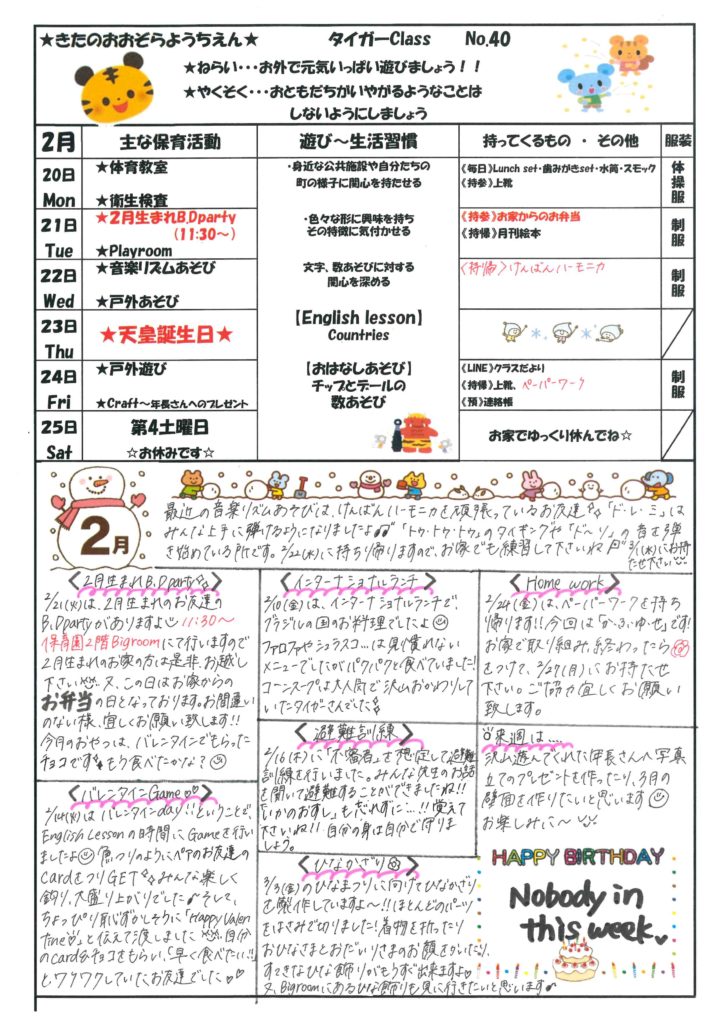 ★きたのおおぞらようちえん★ タイガーClass No.40
★ねらい・・・お外で元気いっぱい遊びましょう！！
★やくそく・・・おともだちがいやがるようなことは
しないようにしましょう
2月 主な保育活動 遊び～生活習慣 持ってくるもの ・ その他 服装
20日 Mon
★体育教室
★衛生検査
・身近な公共施設や自分たちの
町の様子に関心を持たせる
《毎日》Lunch set・歯みがきset・水筒・スモック
《持参》上靴
体操服
21日 Tue
★2月生まれB,Dparty
（11:30～）
★Playroom
・色々な形に興味を持ち
その特徴に気付かせる
《持参》お家からのお弁当
《持帰》月刊絵本
制服
22日 Wed
★音楽リズムあそび
★戸外あそび
文字、数あそびに対する
関心を深める
〈持帰〉けんばんハーモニカ
制服
23日 Thu
★天皇誕生日★
【English lesson】
Countries
24日 Fri
★戸外遊び
★Craft～年長さんへのプレゼント
【おはなしあそび】
チップとデールの
数あそび
《LINE》クラスだより
《持帰》上靴、ペーパーワーク
《預》連絡帳
制服
25日 Sat
第4土曜日
☆お休みです☆
お家でゆっくり休んでね☆
2月
最近の音楽リズムあそびは、けんばんハーモニカを頑張っているお友達 「ド・レ・ミ」は
みんな上手に弾けるようになりましたよ♫ "トゥ・トゥ・トゥ"のタイミングや「ド～ソ」の音を弾
を始めている所です。2/22(水)に持ち帰りますので、お家でも練習して下さいね 3/1(水)にお持
たせ下さい
〈2月生まれB,Dparty〉
2/21(火)は、2月生まれのお友達の
B,Dpartyがありますよ 11:30～
保育園2階Bigroomにて行いますので
2月生まれのお家の方は是非、お越し
下さい 又、この日はお家からの
お弁当の日となっております。お間違い
のない様、宜しくお願い致します!!
今月のおやつは、バレンタインでもらった
チョコです もう食べたかな？
〈バレンタインGame♡〉
2/14(火)はバレンタインday!!ということで、
English Lessonの時間にGameを行い
ましたよ 魚つりのようにペアのお友達の
CardをつりGET みんな楽しく
釣り、大盛り上がりでした♪そして、
ちょっぴり恥ずかしそうに「Happy Valen
tine♡」と伝えて渡しました 自分
のcard&チョコをもらい、「早く食べたい!!」
とワクワクしていたお友達でした♡♡
〈インターナショナルランチ〉
2/10(金)は、インターナショナルランチで、
ブラジルの国のお料理でしたよ
ファロファやシュラスコ…は見慣れない
メニューでしたがパクパクと食べていました!
コーンスープは大人気で沢山おかわりして
いたタイガーさんでした
〈避難訓練〉
2/16(木)に"不審者"を想定して避難
訓練を行いました。みんな先生のお話
を聞いて避難することができましたね!!
"いかのおすし"も忘れずに…!!覚えて
下さいね!! 自分の身は自分で守りま
しょう。
〈ひなかざり〉
3/3(金)のひなまつりに向けてひなかざり
を製作していますよ～!!ほとんどのパーツ
をはさみで切りました！着物を折ったり
おひなさまとおだいりさまのお顔をかいたり、
すてきなひな飾りがもうすぐ出来ますよ
又、Bigroomにあるひな飾りも見に行きたいと思います♪
〈Home work〉
2/24(金)は、ペーパーワークを持ち
帰ります!! 今回は"か・ぶ・ゆ・せ"です!
お家で取り組み、終わったら
をつけて、2/27(月)にお持たせ
下さい。ご協力宜しくお願い
致します。
来週は…
沢山遊んでくれた年長さんへ写真
立てのプレゼントを作ったり、3月の
壁面を作りたいと思います
お楽しみに～
HAPPY BIRTHDAY
Nobody in
this week